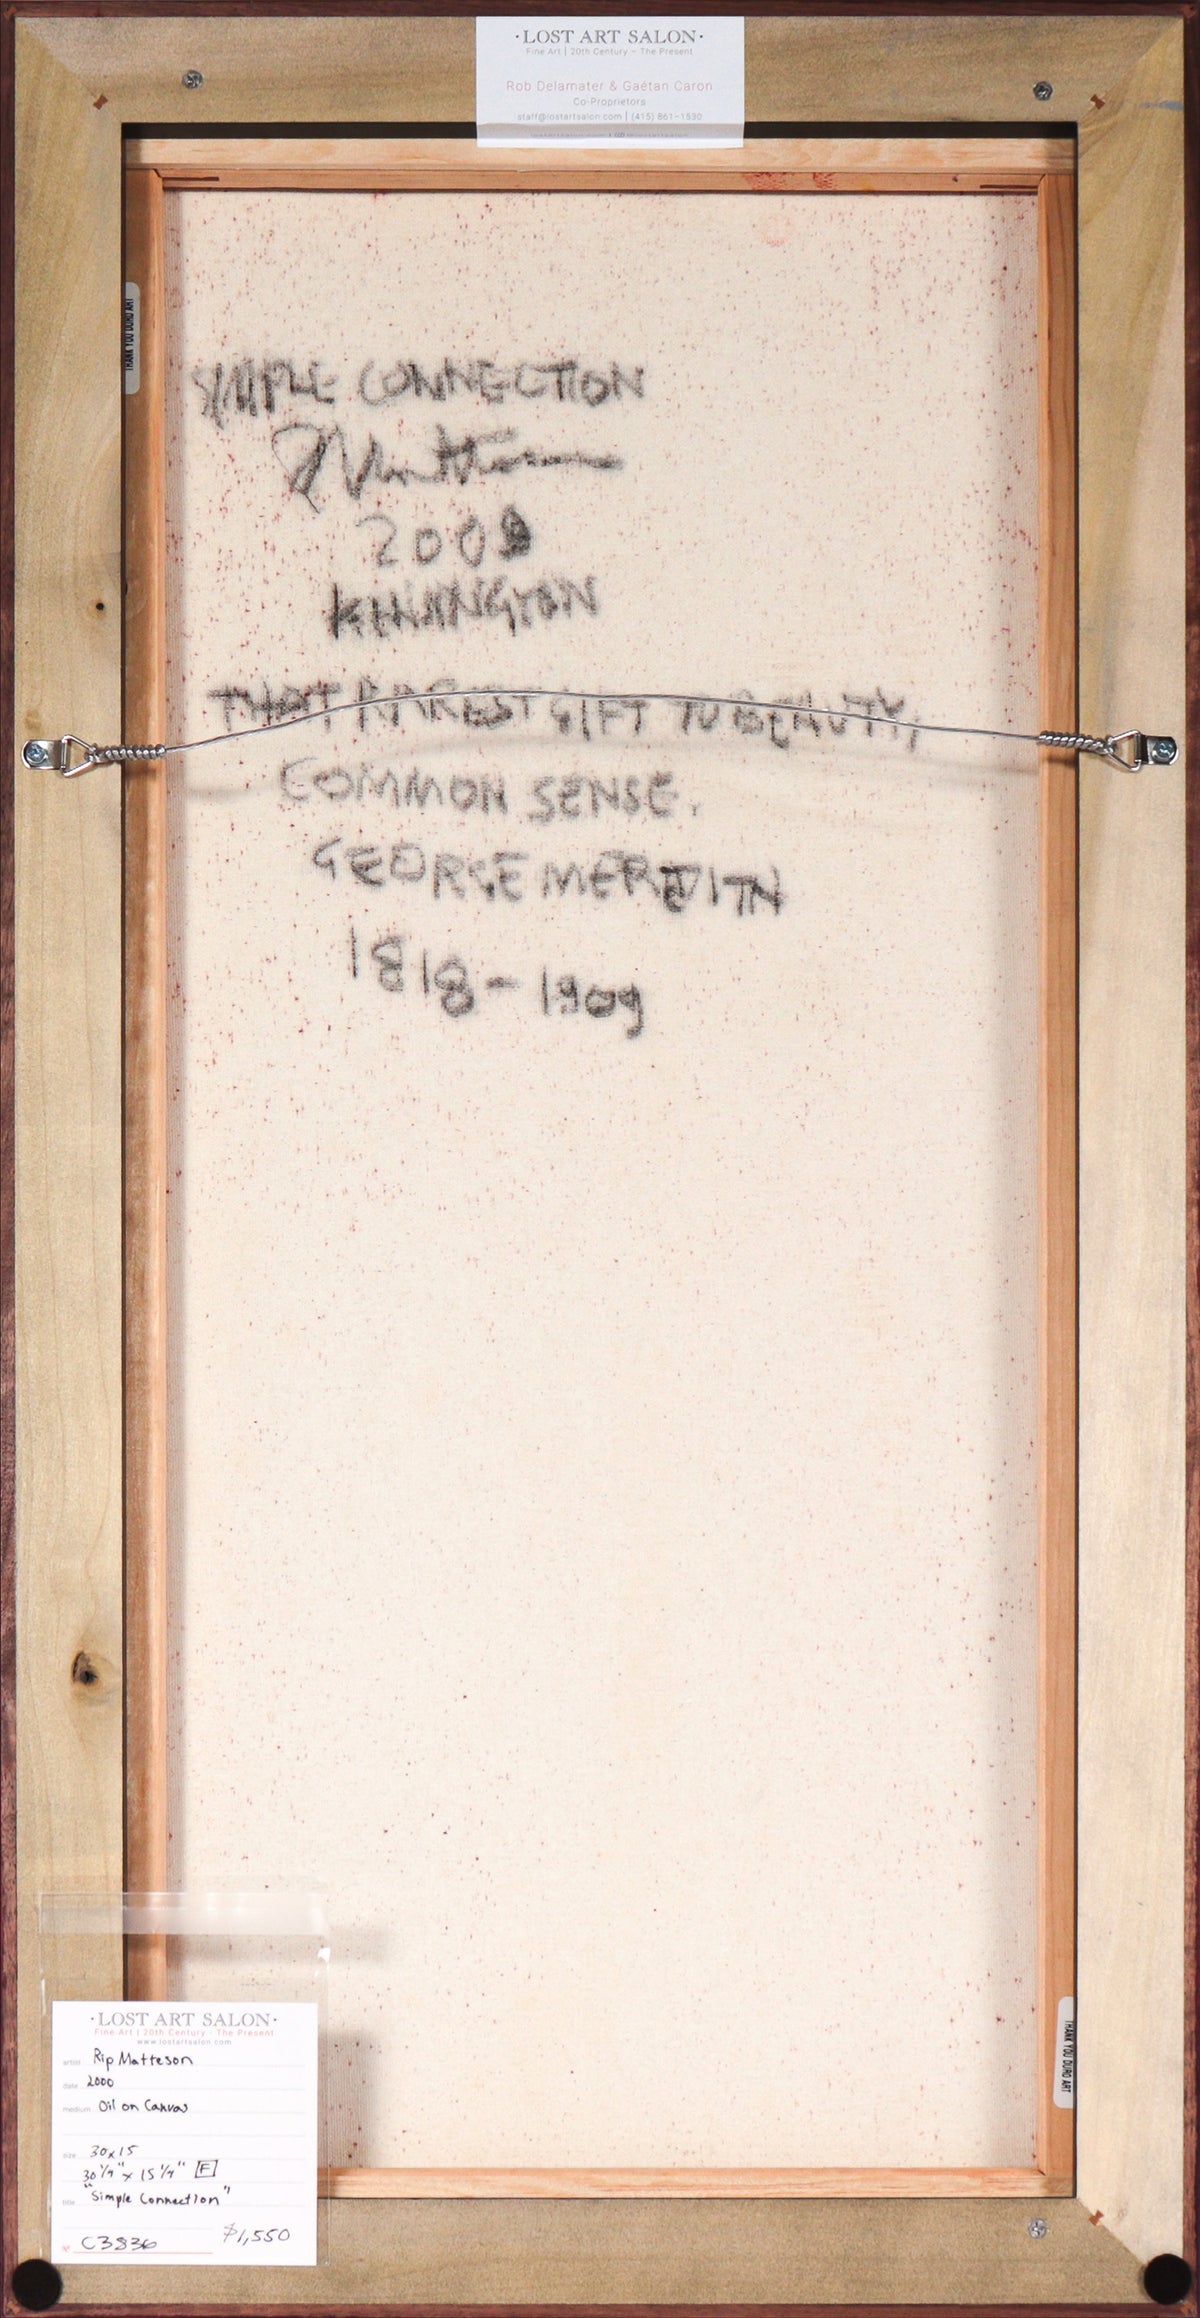 ·LOST ART SALON·
Fine Art | 20th Century – The Present
Rob Delamater & Gaétan Caron
Co-Proprietors
staff@lostartsalon.com | (415) 861-1530
THANK YOU DURO ART
SIMPLE CONNECTION
R Matteson
200
KENSINGTON
THAT RAREST GIFT TO BEAUTY,
COMMON SENSE.
GEORGE MEREDITH
1818-1909
THANK YOU DURO ART
·LOST ART SALON·
Fine Art | 20th Century - The Present
www.lostartsalon.com
artist Rip Matteson
date 2000
medium Oil on Canvas
size 30x15
30 1/4" x 15 1/4" F
title "Simple Connection"
C3836 $1,550